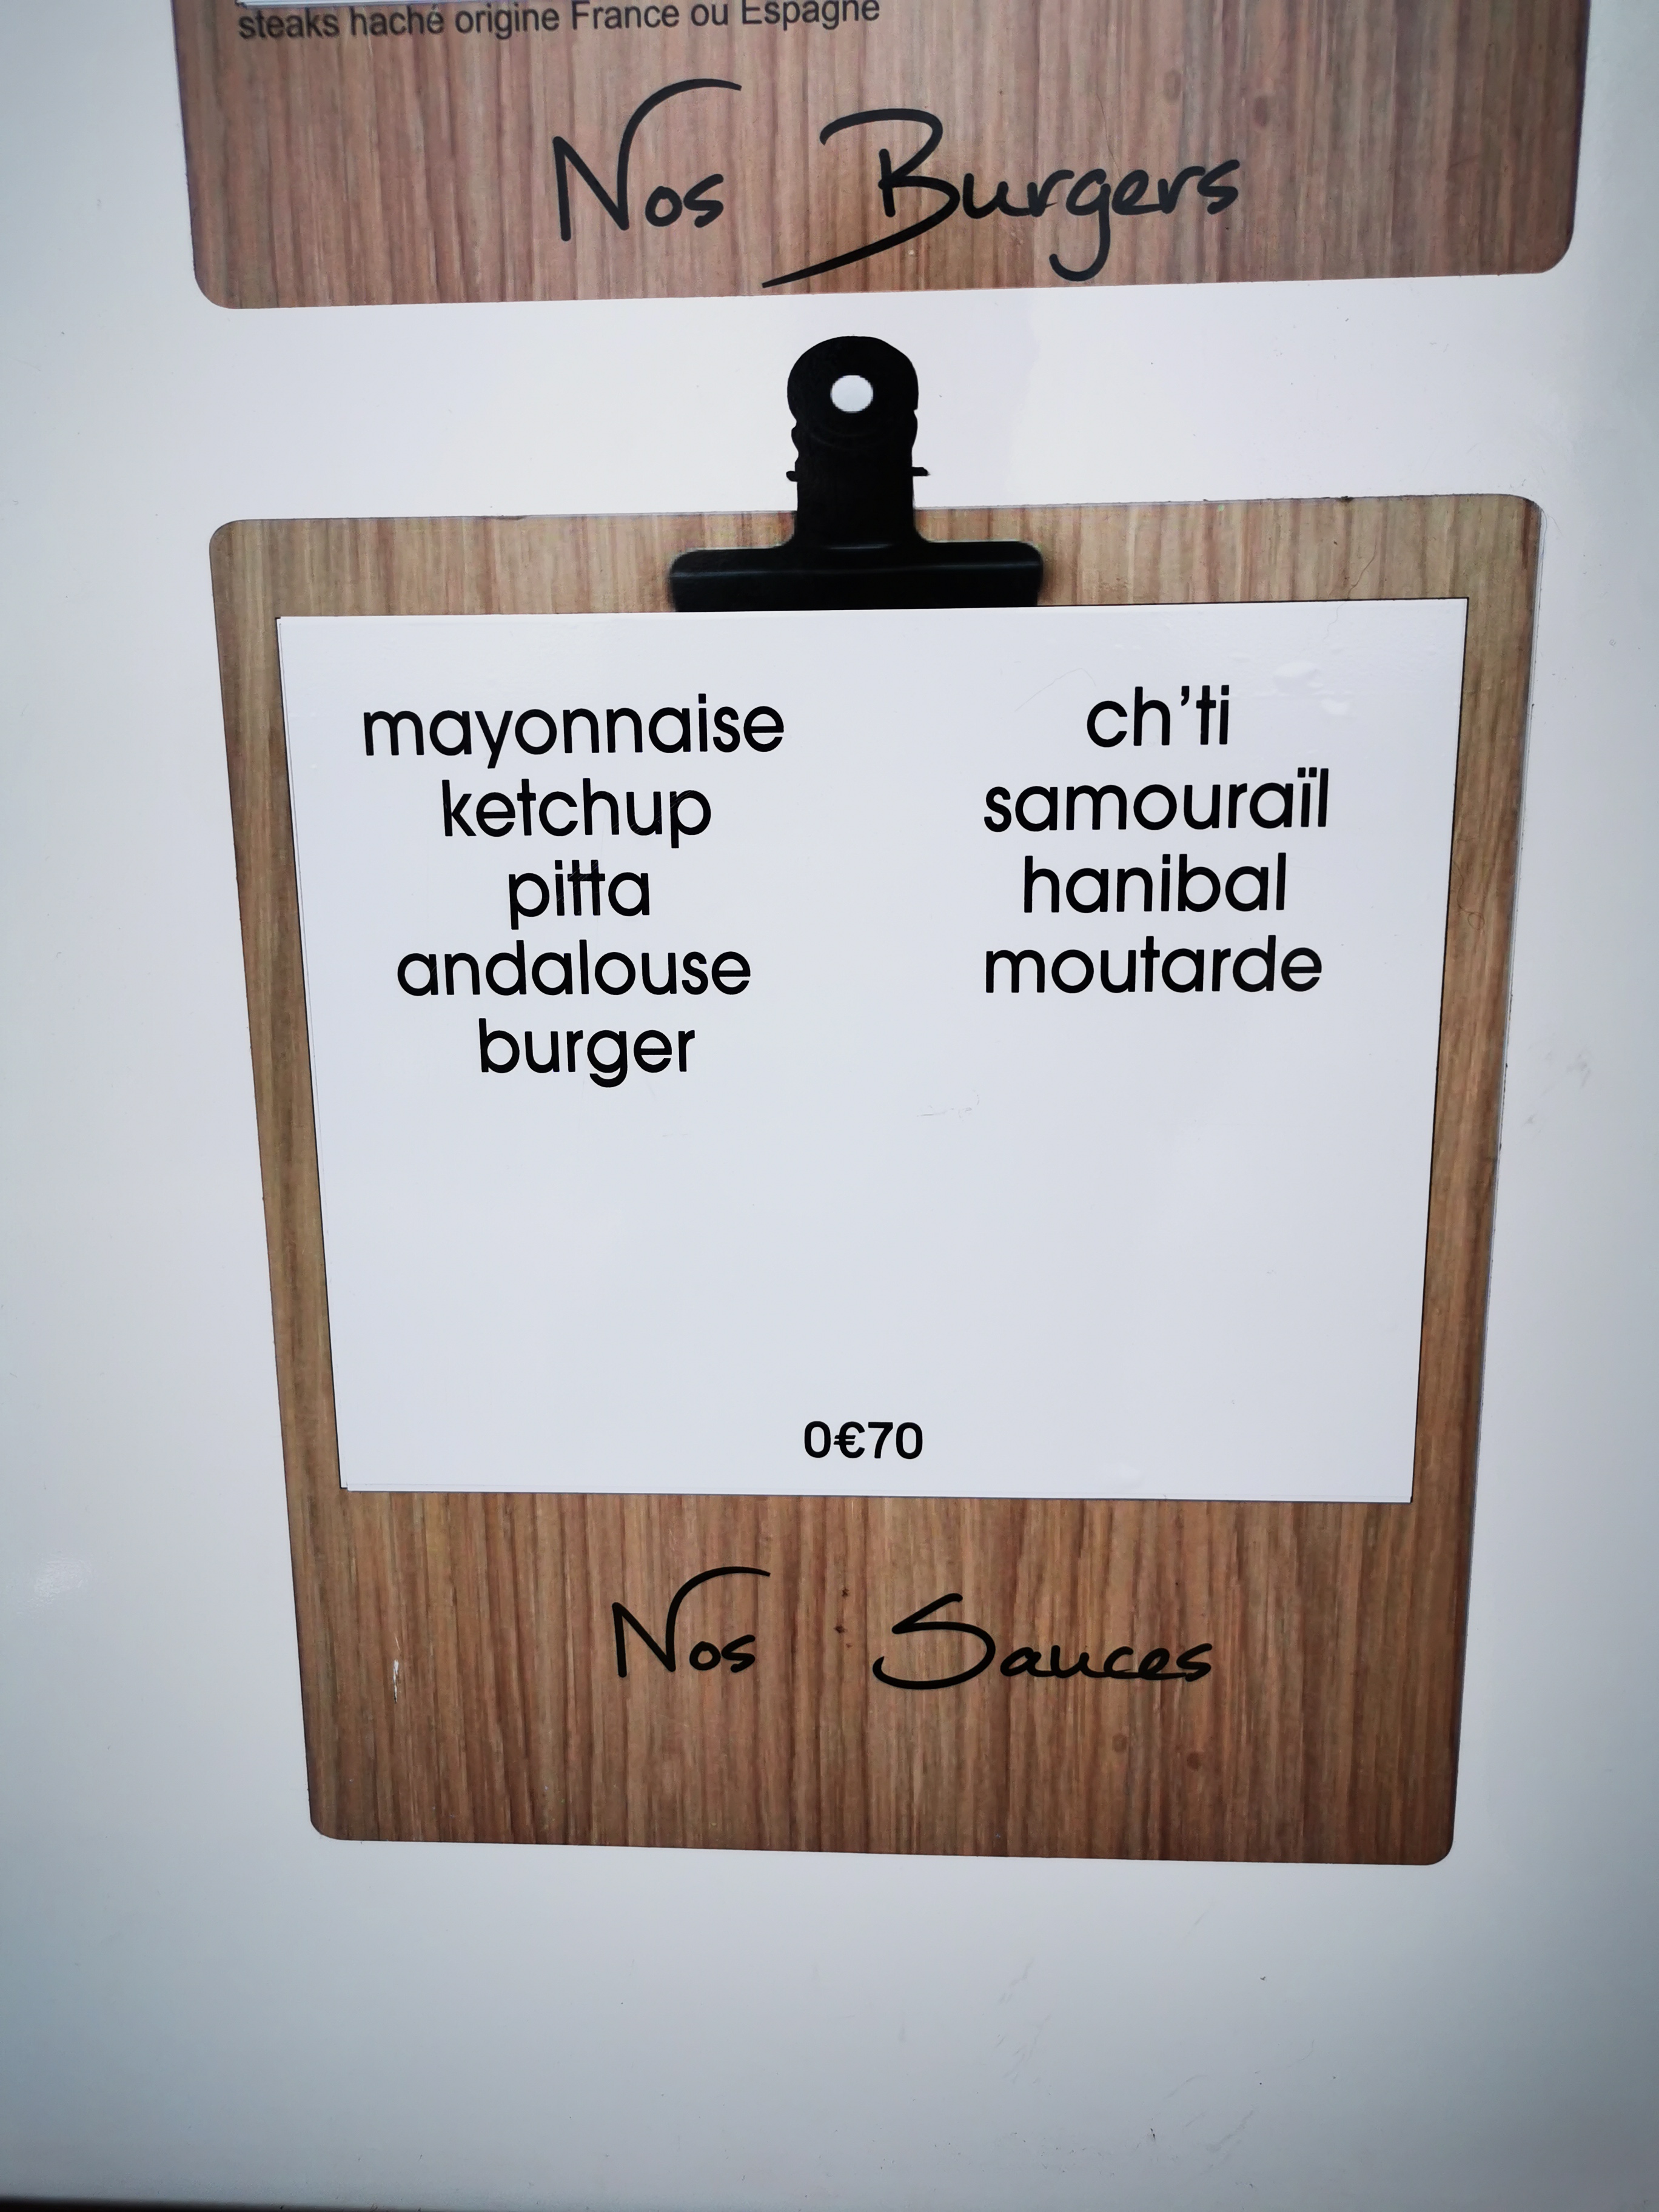 steaks haché origine France ou Espagne
Nos Burgers
mayonnaise
ketchup
pitta
andalouse
burger
ch'ti
samouraïl
hanibal
moutarde
0€70
Nos Sauces